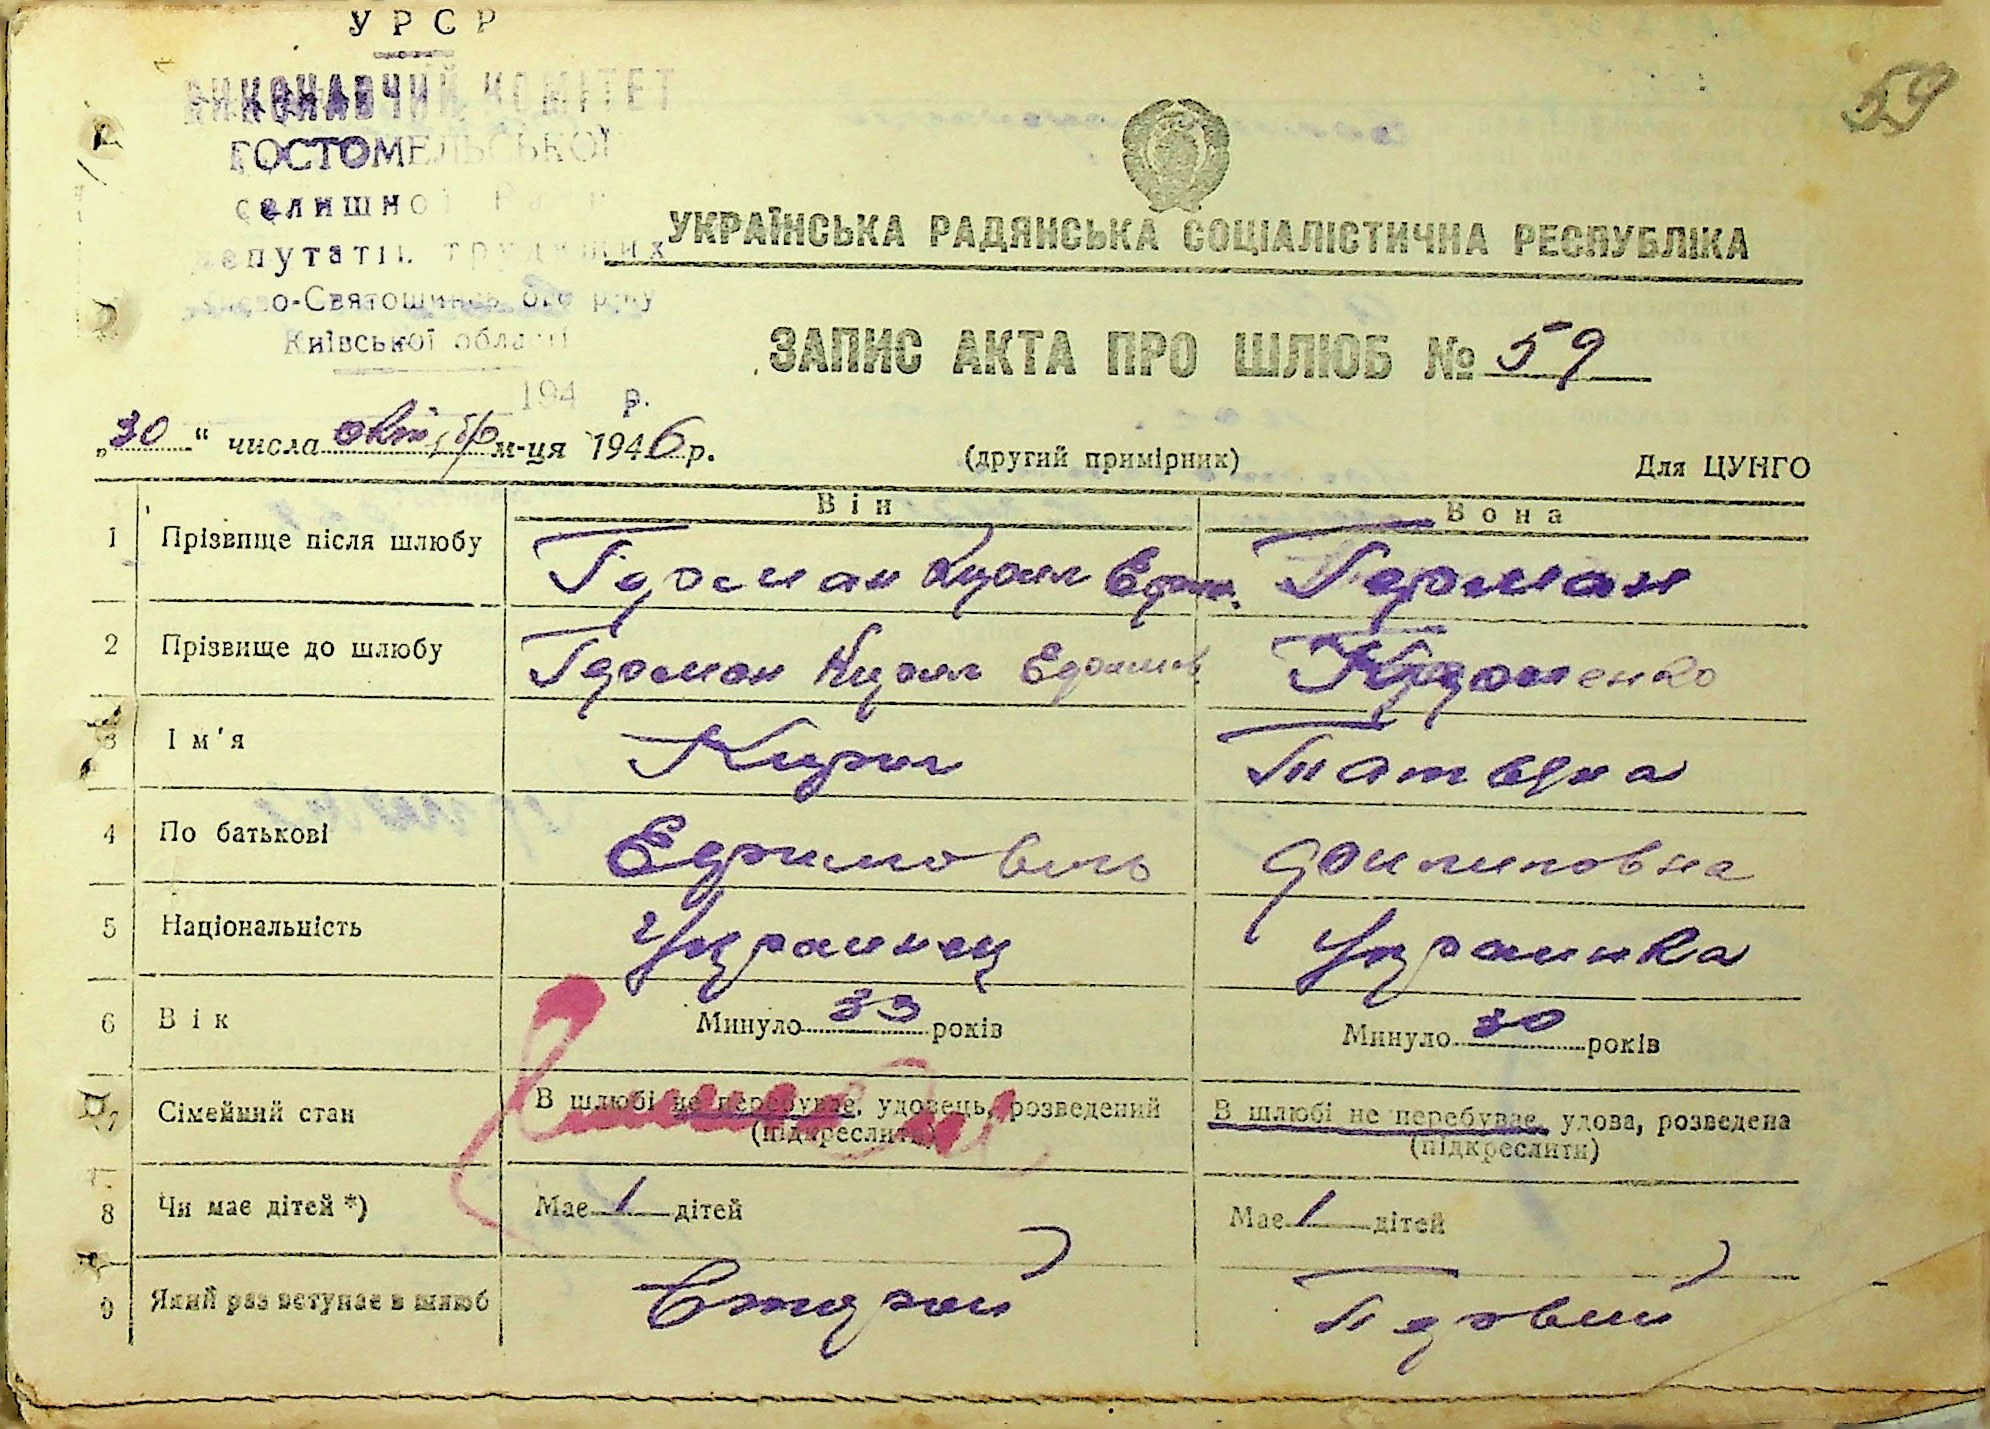 УРСР
ВИКОНАВЧИЙ КОМІТЕТ
ГОСТОМЕЛЬСЬКОЇ
селишної Ради
депутатів трудящих
о-Святошинського р-ну
Київської області
194 р.
59
УКРАЇНСЬКА РАДЯНСЬКА СОЦІАЛІСТИЧНА РЕСПУБЛІКА
ЗАПИС АКТА ПРО ШЛЮБ № 59
„30“ числа октября м-ця 1946 р.
(другий примірник)
Для ЦУНГО
Він
Вона
1 Прізвище після шлюбу Герман Кирил Герман
2 Прізвище до шлюбу Герман Кирил
3 Ім'я Кирил Татьяна
4 По батькові Ефимович Филиповна
5 Національність Украинец Украинка
6 Вік Минуло 33 років Минуло 30 років
7 Сімейний стан В шлюбі не перебуває, удовець, розведений В шлюбі не перебуває, удова, розведена
(підкреслити) (підкреслити)
8 Чи має дітей *) Має 1 дітей Має 1 дітей
9 Який раз вступає в шлюб Вторый Первый